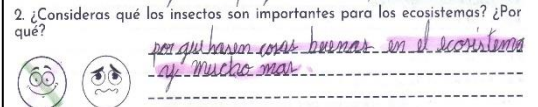 2. ¿Consideras qué los insectos son importantes para los ecosistemas? ¿Por
qué?
por qui hasen cosas buenas en el ecosistema
y mucho mas.